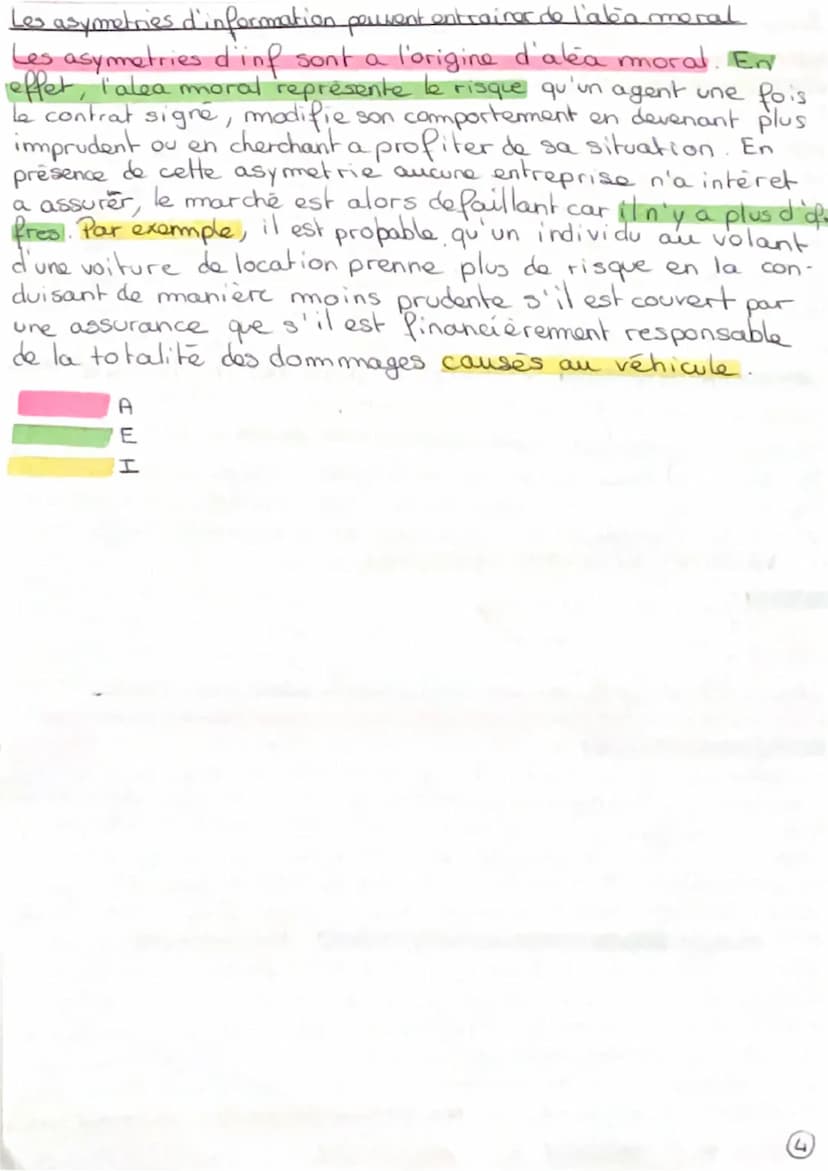 Les asymetries d'information peuvent entrainer de l'aléa moral
Les asymetries d'inf sont a l'origine d'aléa moral. En
effet, l'alea moral représente le risque qu'un agent une fois
le contrat signé, modifie son comportement en devenant plus
imprudent ou en cherchant a profiter de sa situation. En
présence de cette asymetrie aucune entreprise n'a intéret
a assurer, le marché est alors defaillant car il n'y a plus d'of
fres. Par exemple, il est probable qu'un individu au volant
d'une voiture de location prenne plus de risque en la con-
duisant de manière moins prudente s'il est couvert par
une assurance que s'il est financièrement responsable
de la totalité des dommages causés au véhicule.
A
E
I
4